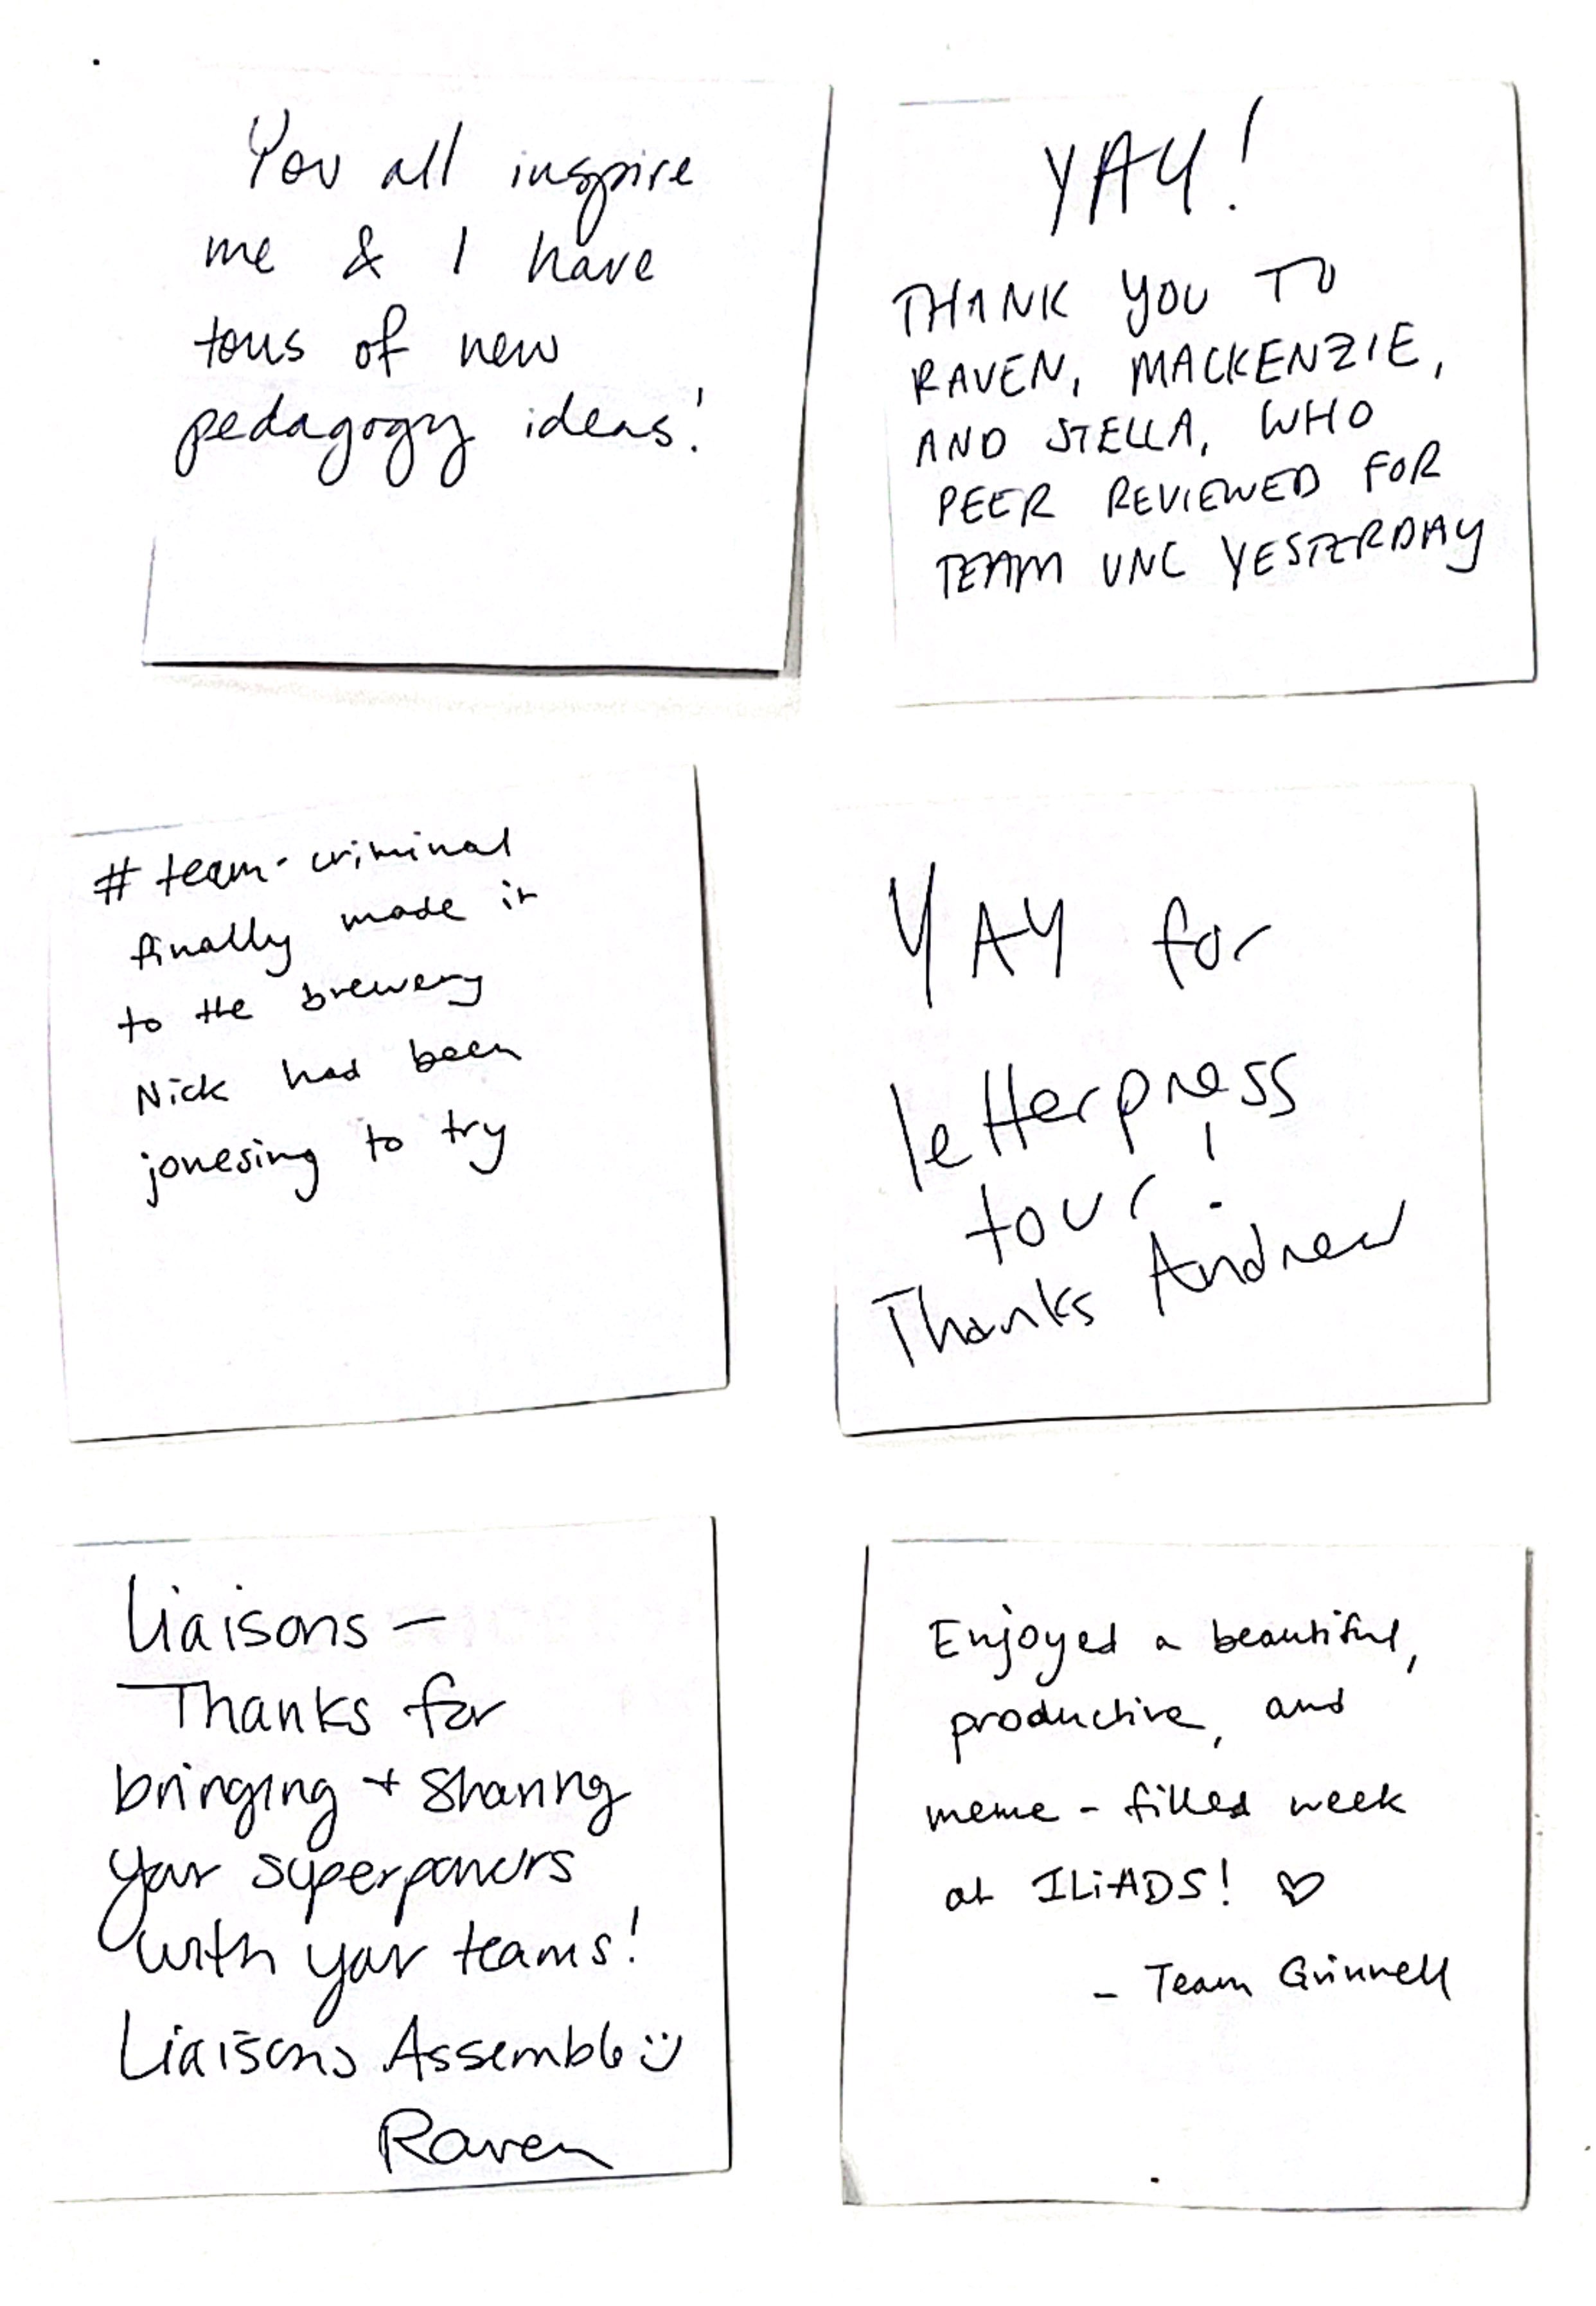 You all inspire
me & I have
tons of new
pedagogy ideas!
YAY!
THANK YOU TO
RAVEN, MACKENZIE,
AND STELLA, WHO
PEER REVIEWED FOR
TEAM UNC YESTERDAY
#team-criminal
finally made it
to the brewery
Nick had been
jonesing to try
YAY for
letterpress
tour!
Thanks Andrew
Liaisons —
Thanks for
bringing + sharing
your superpowers
with your teams!
Liaisons Assemble :)
Raven
Enjoyed a beautiful,
productive, and
meme-filled week
at ILiADS! ♡
- Team Grinnell